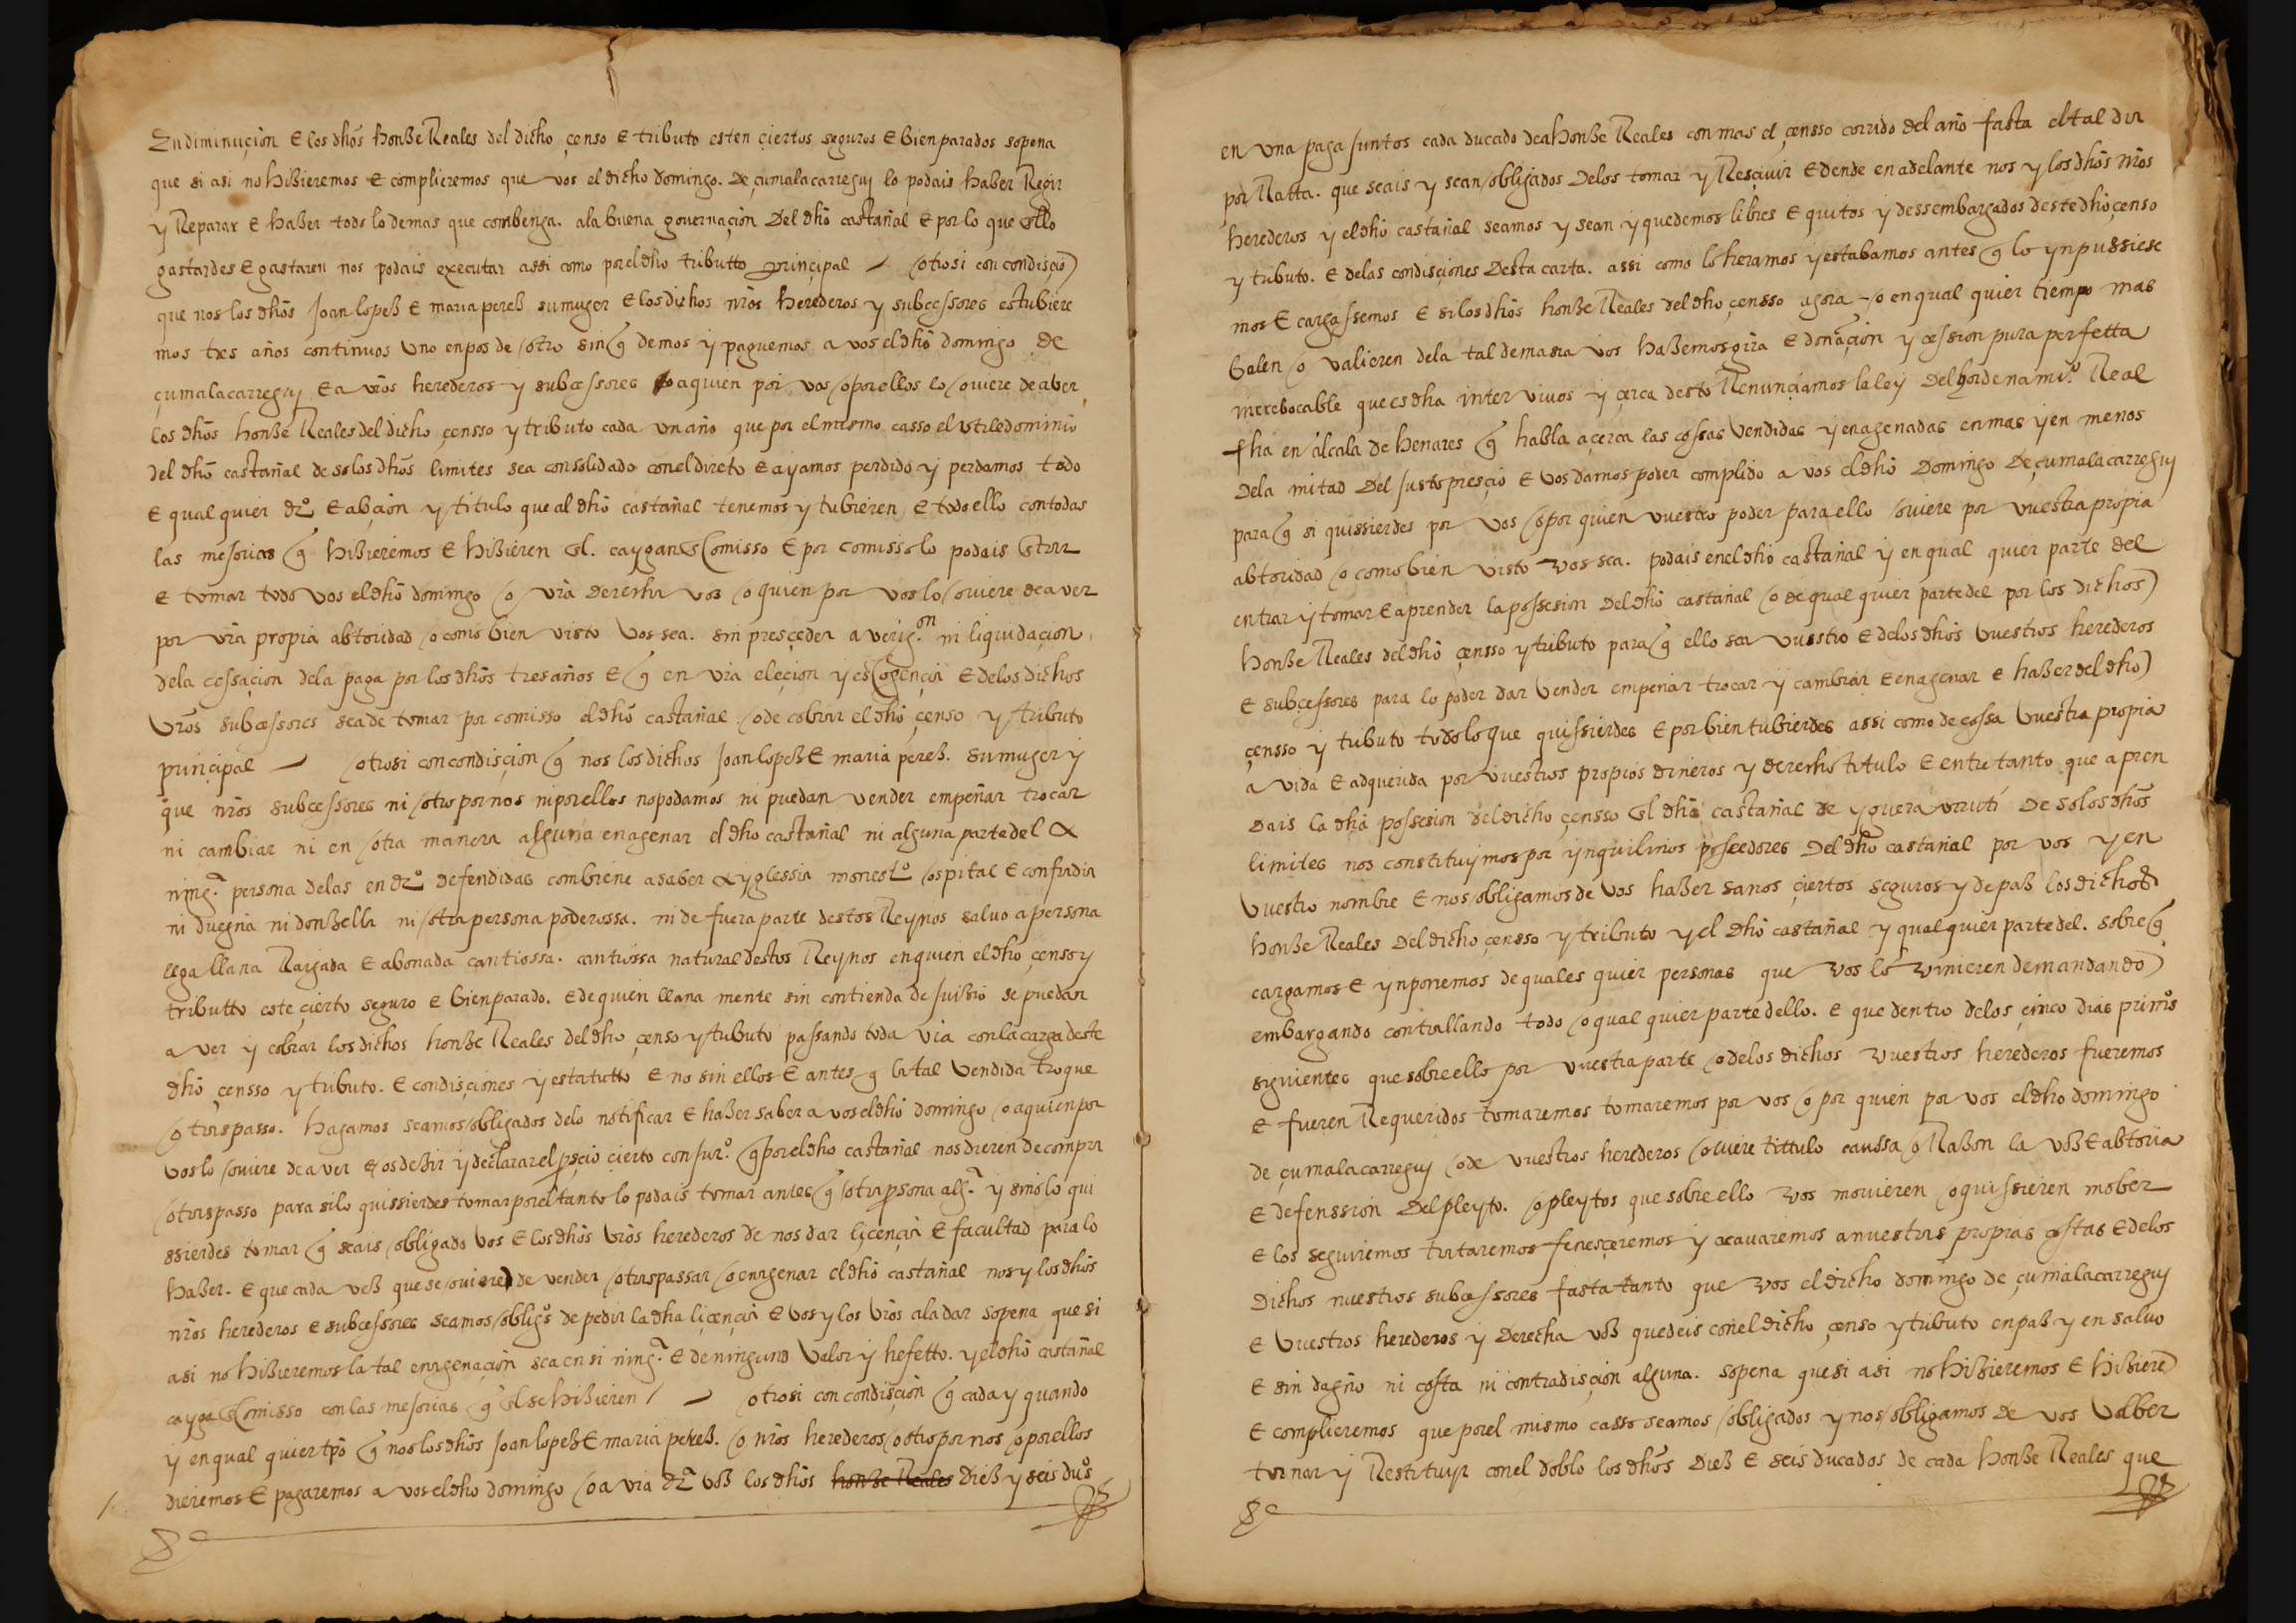 En diminuçion E los dhõs honße Reales del dicho çenso E tributo esten çiertos seguros E bien parados sopena
que si asi no hißieremos E complieremos que vos el dicho domingo. De çumalacarreguy lo podais haber Regir
y Reparar E haßer todo lo demas que combenga. ala buena governaçion Del dhõ castañal E por lo que Ello
gastardes E gastaren nos podais executar assi como por el dho tributto prinçipal / otrosi con condisçiõ
que nos los dhõs Joan lopeß E maria pereß su muger E los dichos nrõs herederos y subcessores estubiere
mos tres años continuos Uno enpos de otro sin q̃ demos y paguemos a vos el dhõ domingo de
çumalacarreguy E a vrõs herederos y subcessores o aquien por vos o por ellos lo oviere de aber
los dhõs honße Reales del dicho çensso y tributo cada un año que por el mismo casso el utile dominio
del dhõ castañal de so los dhõs limites sea consolidado con el direto E ayamos perdido y perdamos todo
E qual quier dr͠o E abçion y titulo que al dhõ castañal tenemos y tubieren E todo ello con todas
las mejorias q̃ hißieremos E hißieren El. caygan En Comisso E por comisso lo podais Entrar
E tomar todo vos el dhõ domingo o vrã derecha voß o quien por vos lo oviere de aver
por vrã propia abtoridad o como bien visto vos sea. sin presçeder averig.on ni liquidaçion
dela cessaçion dela paga por los dhõs tres años E q̃ en vrã eleçion y escogençia E delos dichos
vrõs subcessores sea de tomar por comisso el dhõ castañal o de cobrar el dhõ çenso y tributo
prinçipal / otrosi con condisçion q̃ nos los dichos Joan lopeß E maria pereß. su muger y
que nrõs subcessores ni otro por nos ni por ellos no podamos ni puedan vender empeñar trocar
ni cambiar ni en otra manera alguna enagenar el dho castañal ni alguna parte del A
ning.ª persona delas en dr͠o defendidas combiene a saber A yglessia monest.º ospital E confradia
ni duegña ni donßella ni otra persona poderossa. ni de fuera parte destos Reynos salvo a persona
lega llana Raigada E abonada cantiossa. cantiossa natural destos Reynos en quien el dho çenso y
tributto este çierto seguro E bien parado. E de quien llana mente sin contienda de juißio se puedan
aver y cobrar los dichos honße Reales del dho çenso y tributo passando toda via con la carga deste
dhõ çensso y tributo. E condisçiones y estatutto E no sin ellos E antes q̃ la tal vendida troque
o traspasso. hagamos seamos obligados delo notificar E haßer saber a vos el dhõ domingo o aquien por
vos lo oviere de aver E os deßir y declarar el pçio çierto con jur.º q̃ por el dho castañal nos dieren de compra
o traspasso para si lo quissierdes tomar por el tanto lo podais tomar antes q̃ otra psona alg.ª y si no lo qui
ssierdes tomar q̃ seais obligado vos E los dhõs vrõs herederos de nos dar liçençia E facultad para lo
haßer. E que cada veß que se oviere de vender o traspassar o enagenar el dhõ castañal nos y los dhõs
nrõs herederos E subcessores seamos oblig.os de pedir la dha liçençia E vos y los vrõs a la dar sopena que si
asi no hißieremos la tal enagenaçion sea en si ning.ª E de ninguno valor y hefetto. y el dhõ castañal
cayga En Comisso con las mejorias q̃ El se hißieren / otrosi con condisçion q̃ cada y quando
y en qual quier tpõ q̃ nos los dhõs Joan lopeß E maria pereß. o nrõs herederos o otro por nos o por ellos
dieremos E pagaremos a vos el dho domingo o a vrã dr̃ª voß los dhõs honße Reales Dieß y seis du.os
en una paga juntos cada ducado de a honße Reales con mas el çensso corrido del año fasta el tal dia
por Ratta. que seais y sean obligados Delos tomar y Resçiuir E dende en adelante nos y los dhõs nrõs
herederos y el dhõ castañal seamos y sean y quedemos libres E quitos y dessembargados deste dhõ çenso
y tributo. E delas condisçiones Desta carta. assi como lo heramos y estabamos antes q̃ lo ynpussiese
mos E cargassemos E si los dhõs honße Reales del dho çensso agora o en qual quier tiempo mas
balen o valieren dela tal demasia vos haßemos gr̃ia E donaçion y cession pura perfetta
inrrebocable que es dha inter vivos y çerca desto Renunçiamos la ley Del hordenami.º Real
fha en alcala de henares q̃ habla açerca las cossas vendidas y enagenadas en mas y en menos
Dela mitad Del justo presçio E vos damos poder complido a vos el dhõ Domingo De çumalacarreguy
para q̃ si quissierdes por vos o por quien vuestro poder para ello oviere por vuestra propia
abtoridad o como bien visto vos sea. podais en el dhõ castañal y en qual quier parte del
entrar y tomar E aprender la possesion Del dhõ castañal o de qual quier parte del por los dichos
honße Reales del dhõ çensso y tributo para q̃ ello sea vuestro E delos dhõs vuestros herederos
E subçessores para lo poder dar vender empeñar trocar y cambiar E enagenar E haßer del dho
çensso y tributo todo lo que quissierdes E por bien tubierdes assi como de cossa vuestra propia
avida E adquerida por vuestros propios dineros y derecho titulo E entre tanto que apren
dais la dha possesion del dicho çensso El dhõ castañal de yguera urruti De so los dhõs
limites nos constituymos por ynquilinos posseedores Del dhõ castañal por vos y en
vuestro nombre E nos obligamos de vos haßer sanos çiertos seguros y de paß los dichos
honße Reales Del dicho çensso y tributo y el dhõ castañal y qual quier parte del. sobre q̃
cargamos E ynponemos de quales quier personas que vos lo vinieren demandando
embargando contrallando todo o qual quier parte dello. E que dentro delos çinco dias prim.os
siguientes que sobre ello por vuestra parte o delos dichos vuestros herederos fueremos
E fueren Requeridos tomaremos tomaremos por vos o por quien por vos el dho domingo
de çumalacarreguy o de vuestros herederos oviere tittulo caussa o Raßon la voß E abtoria
E defenssion Del pleyto. o pleytos que sobre ello vos movieren o quissieren mober
E los seguiremos trataremos fenesçeremos y acavaremos a nuestras propias costas E delos
Dichos nuestros subcessores fasta tanto que vos el dicho domingo de çumalacarreguy
E vuestros herederos y Derecha voß quedeis con el dicho çenso y tributo en paß y en salvo
E sin dagño ni costa ni contradisçion alguna. sopena que si asi no hißieremos E hißierẽ
E complieremos que por el mismo casso seamos obligados y nos obligamos de vos volber
tornar y Restituyr con el doblo los dhõs Dieß E seis ducados de cada honße Reales que